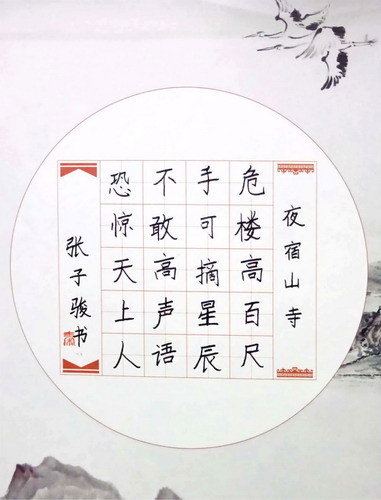 夜宿山寺
危楼高百尺
手可摘星辰
不敢高声语
恐惊天上人
张子骏书